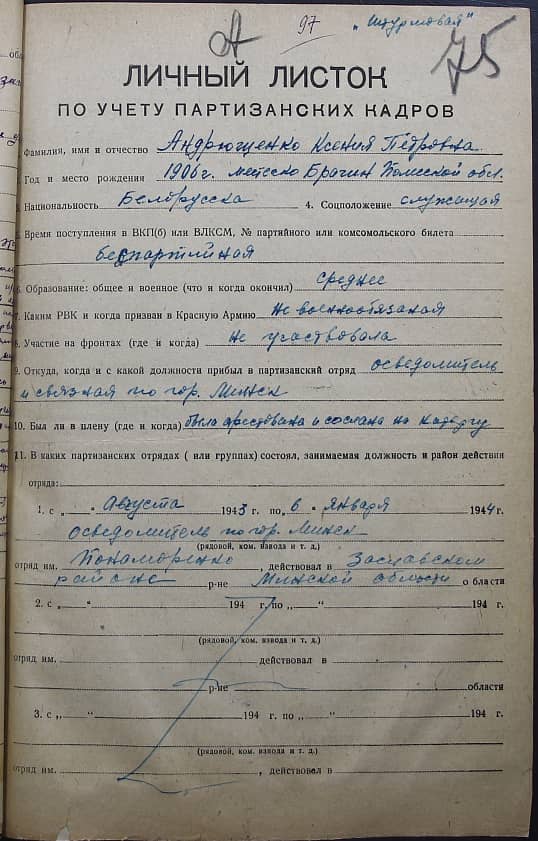 97 „Штурмовая"
75
ЛИЧНЫЙ ЛИСТОК
ПО УЧЕТУ ПАРТИЗАНСКИХ КАДРОВ
Фамилия, имя и отчество Андрющенко Ксения Петровна
Год и место рождения 1906 г. местеско Брагин Полесской обл.
Национальность Белорусска 4. Соцположение служащая
Время поступления в ВКП(б) или ВЛКСМ, № партийного или комсомольского билета
беспартийная
6. Образование: общее и военное (что и когда окончил) среднее
7. Каким РВК и когда призван в Красную Армию Не военнообязаная
8. Участие на фронтах (где и когда) Не участвовала
9. Откуда, когда и с какой должности прибыл в партизанский отряд осведомитель
и связная по гор. Минск
10. Был ли в плену (где и когда) была арестована и сослана на каторгу
11. В каких партизанских отрядах ( или группах) состоял, занимаемая должность и район действия
отряда:
1. с „ " Августа 1943 г. по „6 " января 1944 г.
осведомитель по гор. Минск
(рядовой, ком. взвода и т. д.)
отряд им. Пономоренко, действовал в Заславском
районе р-не Минской области области
2. с „ " 194 г. по „ " 194 г.
(рядовой, ком. взвода и т. д.)
отряд им. действовал в
р-не области
3. с „ " 194 г. по „ " 194 г.
(рядовой, ком. взвода и т. д.)
отряд им. , действовал в